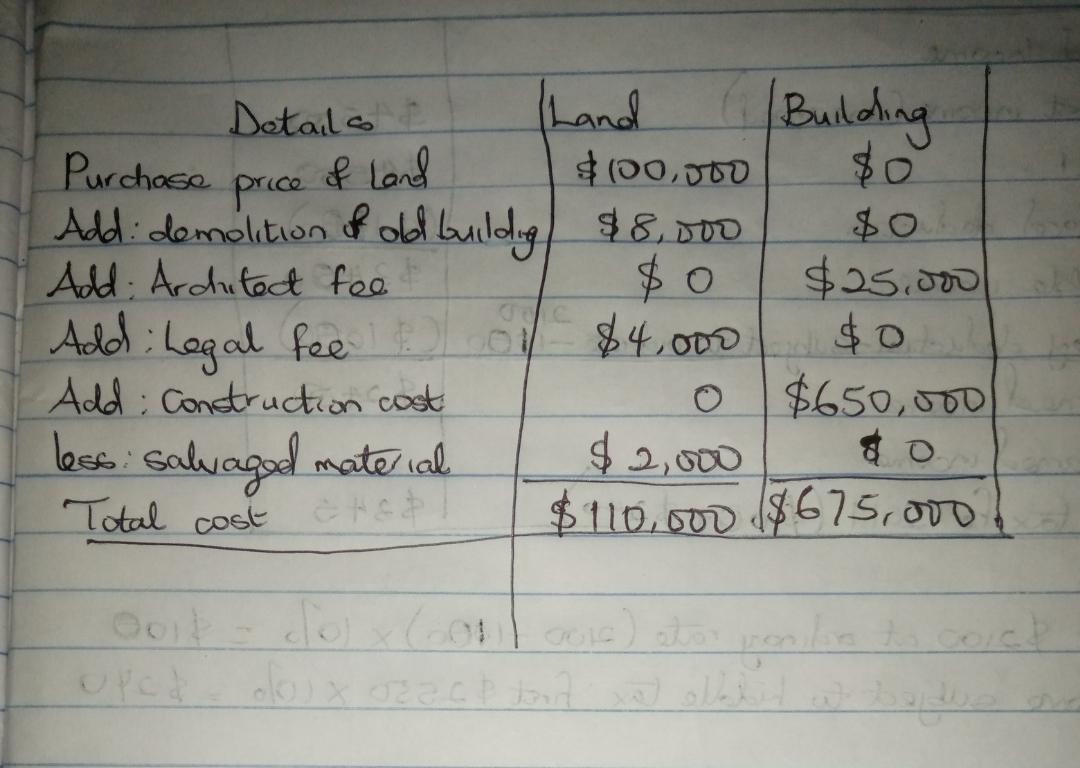 Details Land Building
Purchase price of Land $100,000 $0
Add: demolition of old building $8,000 $0
Add: Architect fee $0 $25,000
Add: Legal fee $4,000 $0
Add: Construction cost 0 $650,000
less: salvaged material $2,000 $0
Total cost $110,000 $675,000